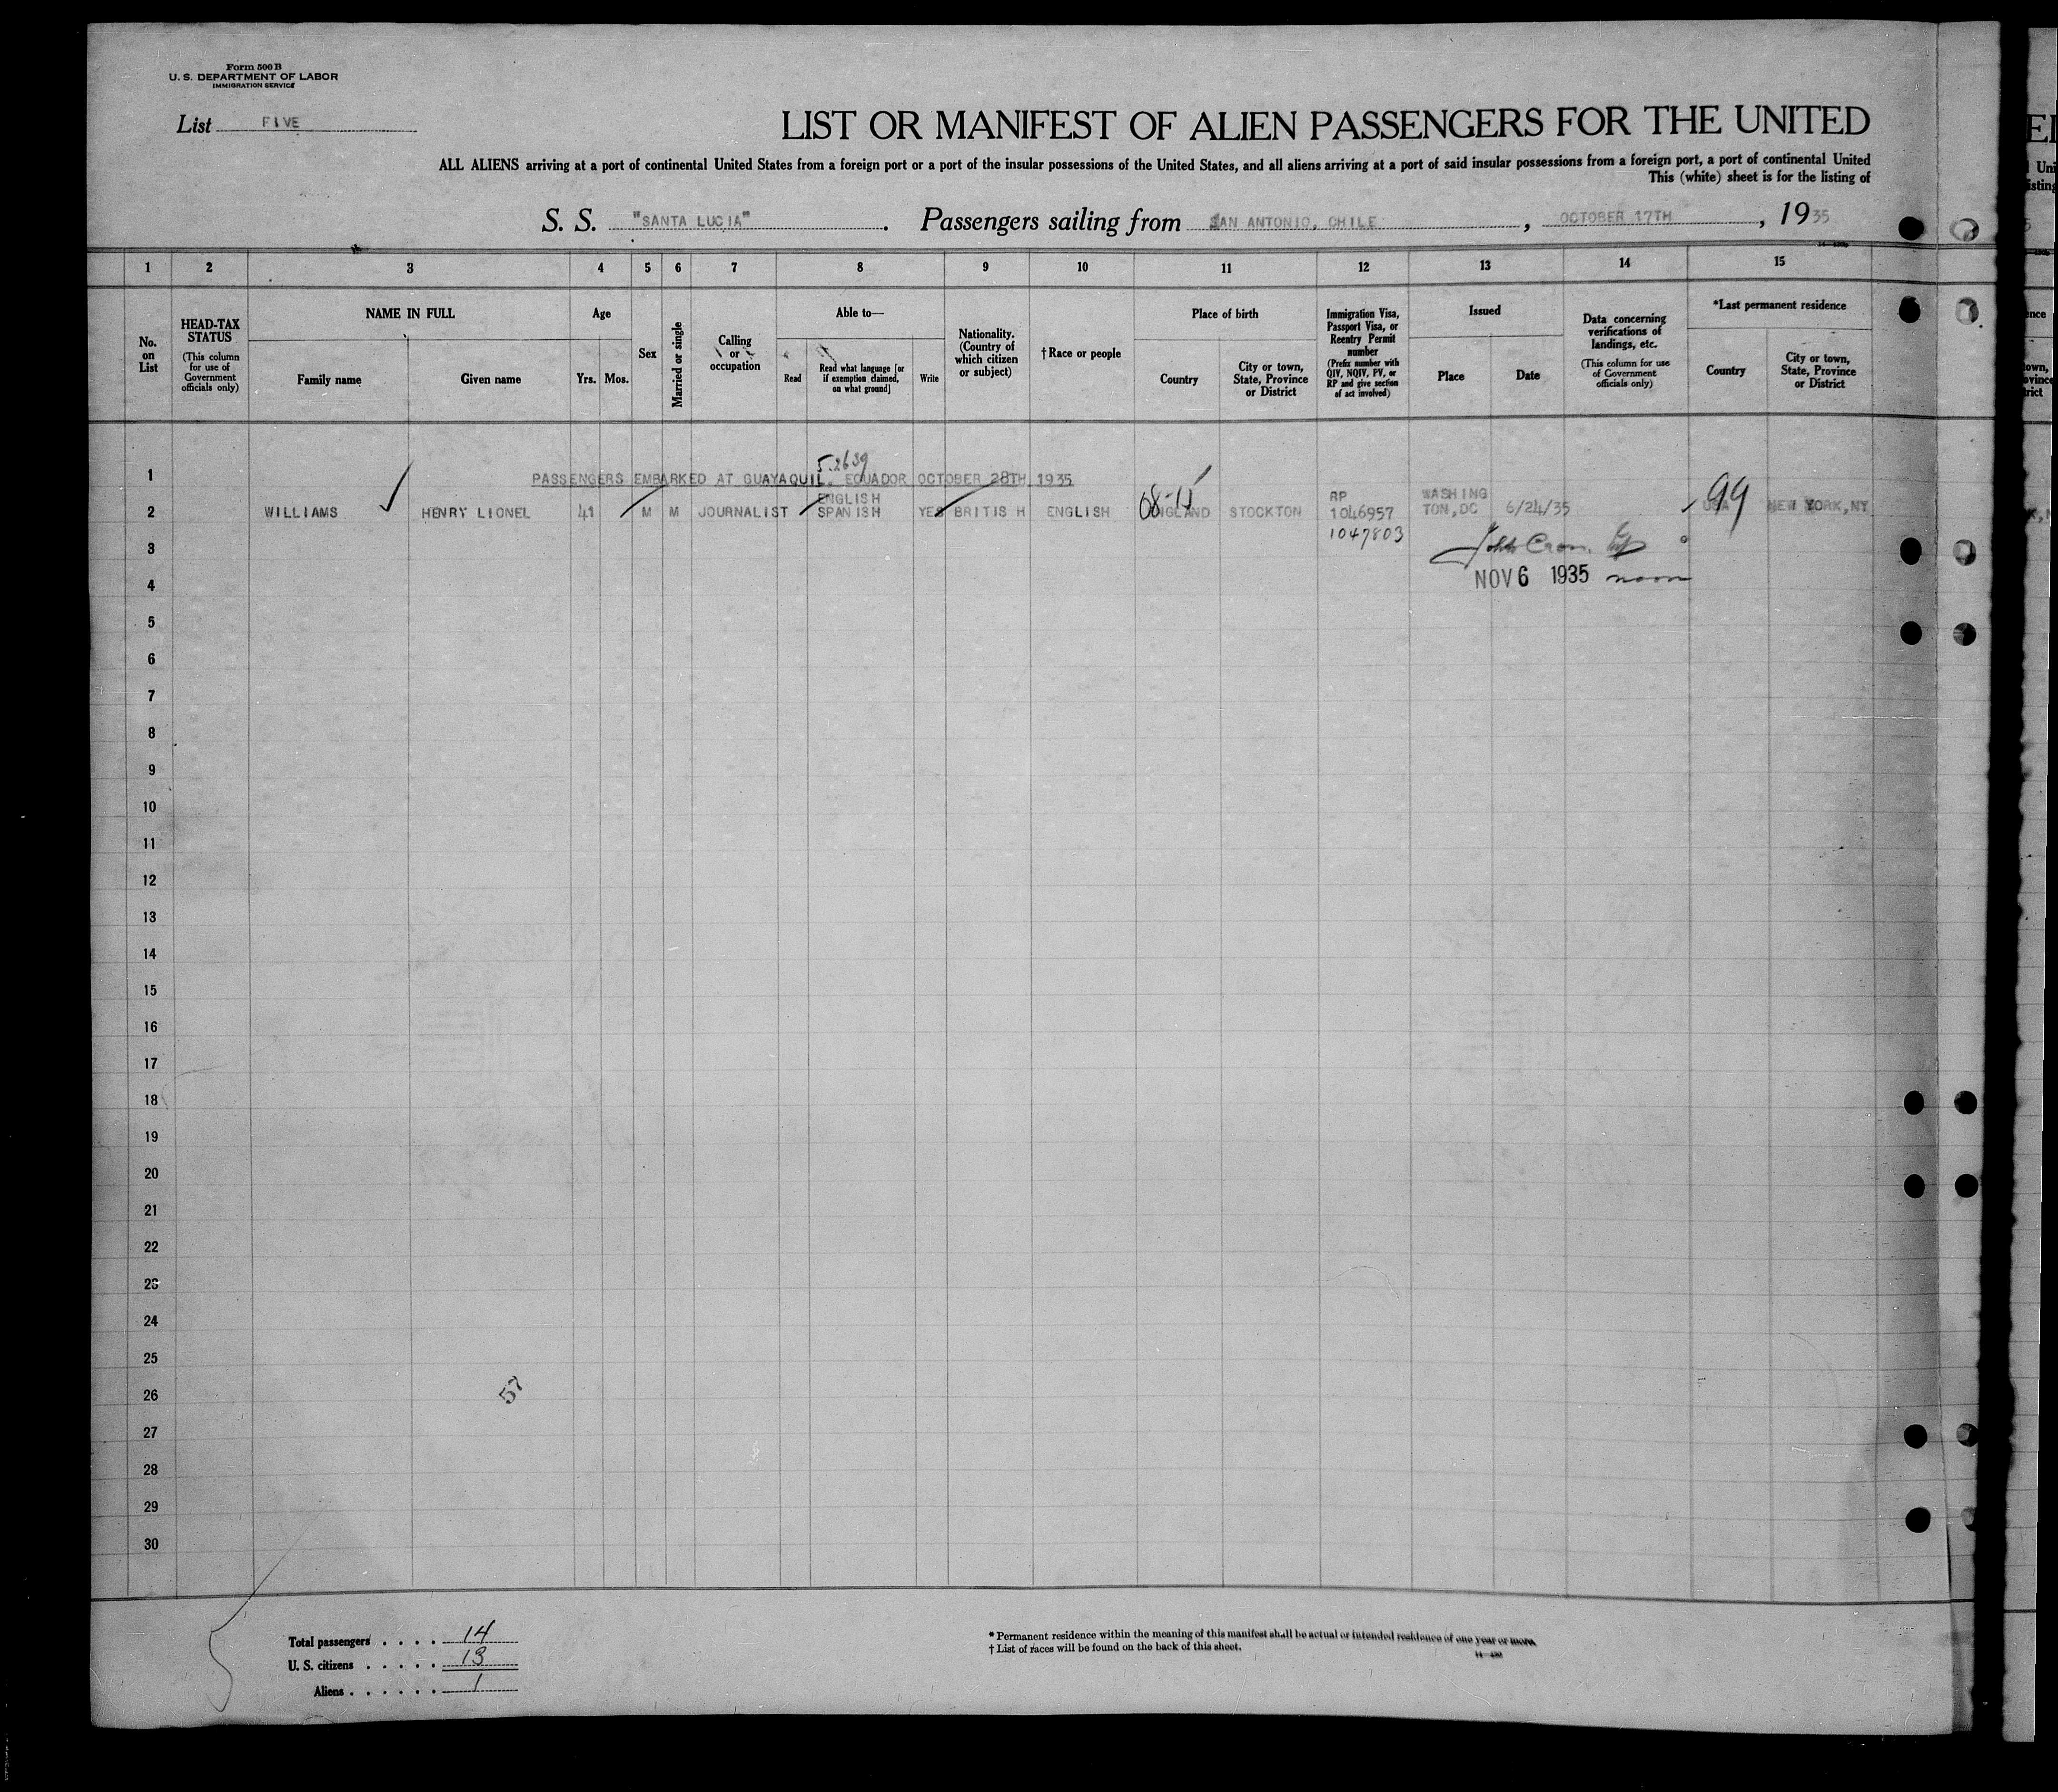 Form 500 B
U. S. DEPARTMENT OF LABOR
IMMIGRATION SERVICE
List FIVE
LIST OR MANIFEST OF ALIEN PASSENGERS FOR THE UNITED
ALL ALIENS arriving at a port of continental United States from a foreign port or a port of the insular possessions of the United States, and all aliens arriving at a port of said insular possessions from a foreign port, a port of continental United
This (white) sheet is for the listing of
S. S. "SANTA LUCIA". Passengers sailing from SAN ANTONIO, CHILE, OCTOBER 17TH, 1935
1 2 3 4 5 6 7 8 9 10 11 12 13 14 15
No. on List
HEAD-TAX STATUS
(This column for use of Government officials only)
NAME IN FULL
Family name
Given name
Age
Yrs.
Mos.
Sex
Married or single
Calling or occupation
Able to—
Read
Read what language [or if exemption claimed, on what ground]
Write
Nationality. (Country of which citizen or subject)
†Race or people
Place of birth
Country
City or town, State, Province or District
Immigration Visa, Passport Visa, or Reentry Permit number
(Prefix number with QIV, NQIV, PV, or RP and give section of act involved)
Issued
Place
Date
Data concerning verifications of landings, etc.
(This column for use of Government officials only)
*Last permanent residence
Country
City or town, State, Province or District
5.2639
1 PASSENGERS EMBARKED AT GUAYAQUIL, ECUADOR OCTOBER 28TH, 1935
2 WILLIAMS HENRY LIONEL 41 M M JOURNALIST ENGLISH SPANISH YES BRITISH ENGLISH ENGLAND STOCKTON RP 1046957 WASHINGTON,DC 6/24/35 USA 99 NEW YORK,NY
3 1047803
4 NOV 6 1935 noon
5
6
7
8
9
10
11
12
13
14
15
16
17
18
19
20
21
22
23
24
25
26
57
27
28
29
30
Total passengers . . . . 14
U. S. citizens . . . . . 13
Aliens . . . . . . 1
* Permanent residence within the meaning of this manifest shall be actual or intended residence of one year or more.
† List of races will be found on the back of this sheet.